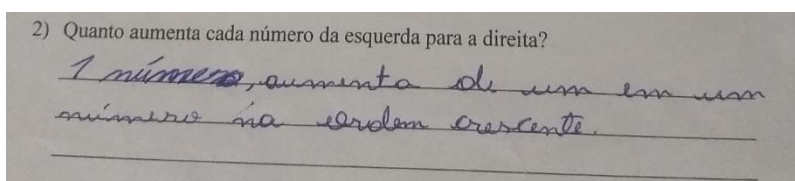 2) Quanto aumenta cada número da esquerda para a direita?
1 número, aumenta de um em um
número na ordem crescente.